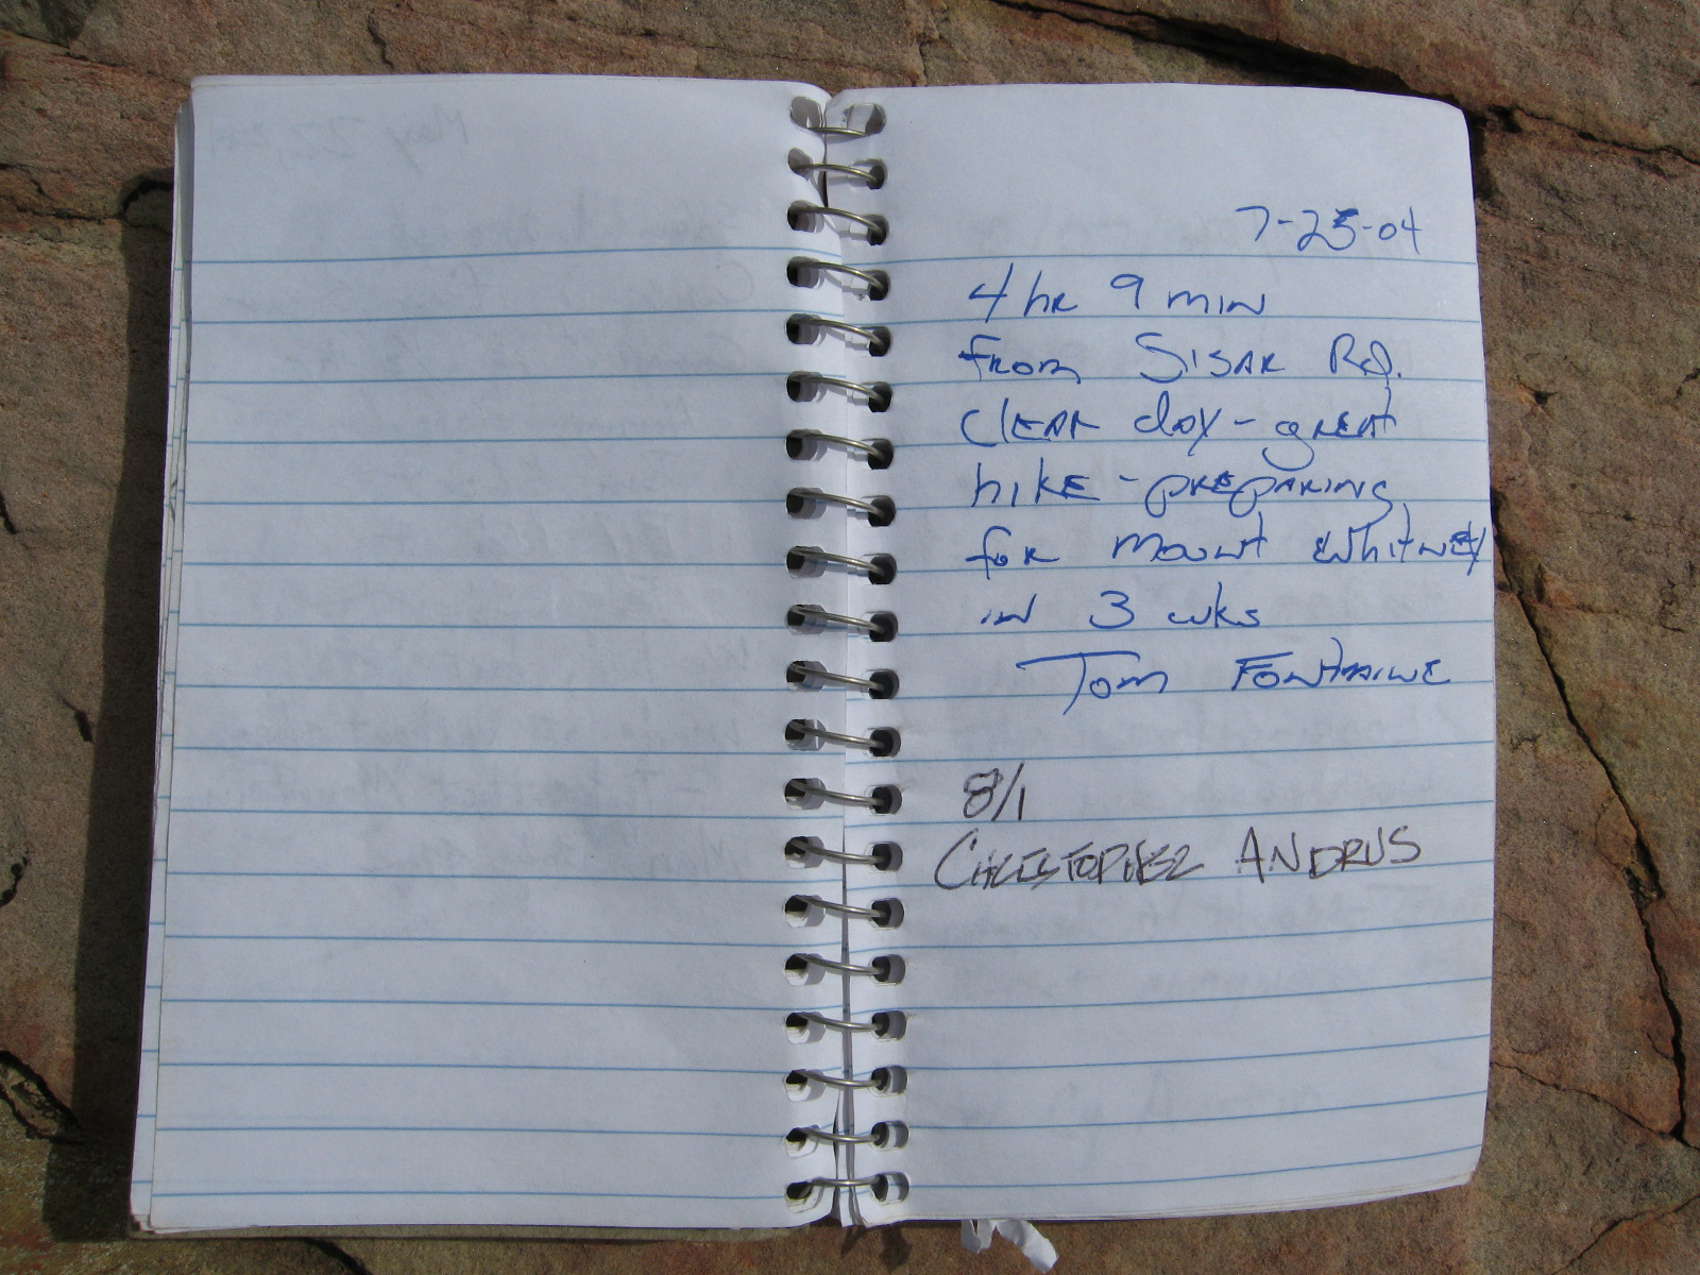 7-25-04
4 hr 9 min
from Sisar Rd.
Clear day - great
hike - preparing
for Mount Whitney
in 3 wks
Tom Fontaine
8/1
CHRISTOPHER ANDRUS